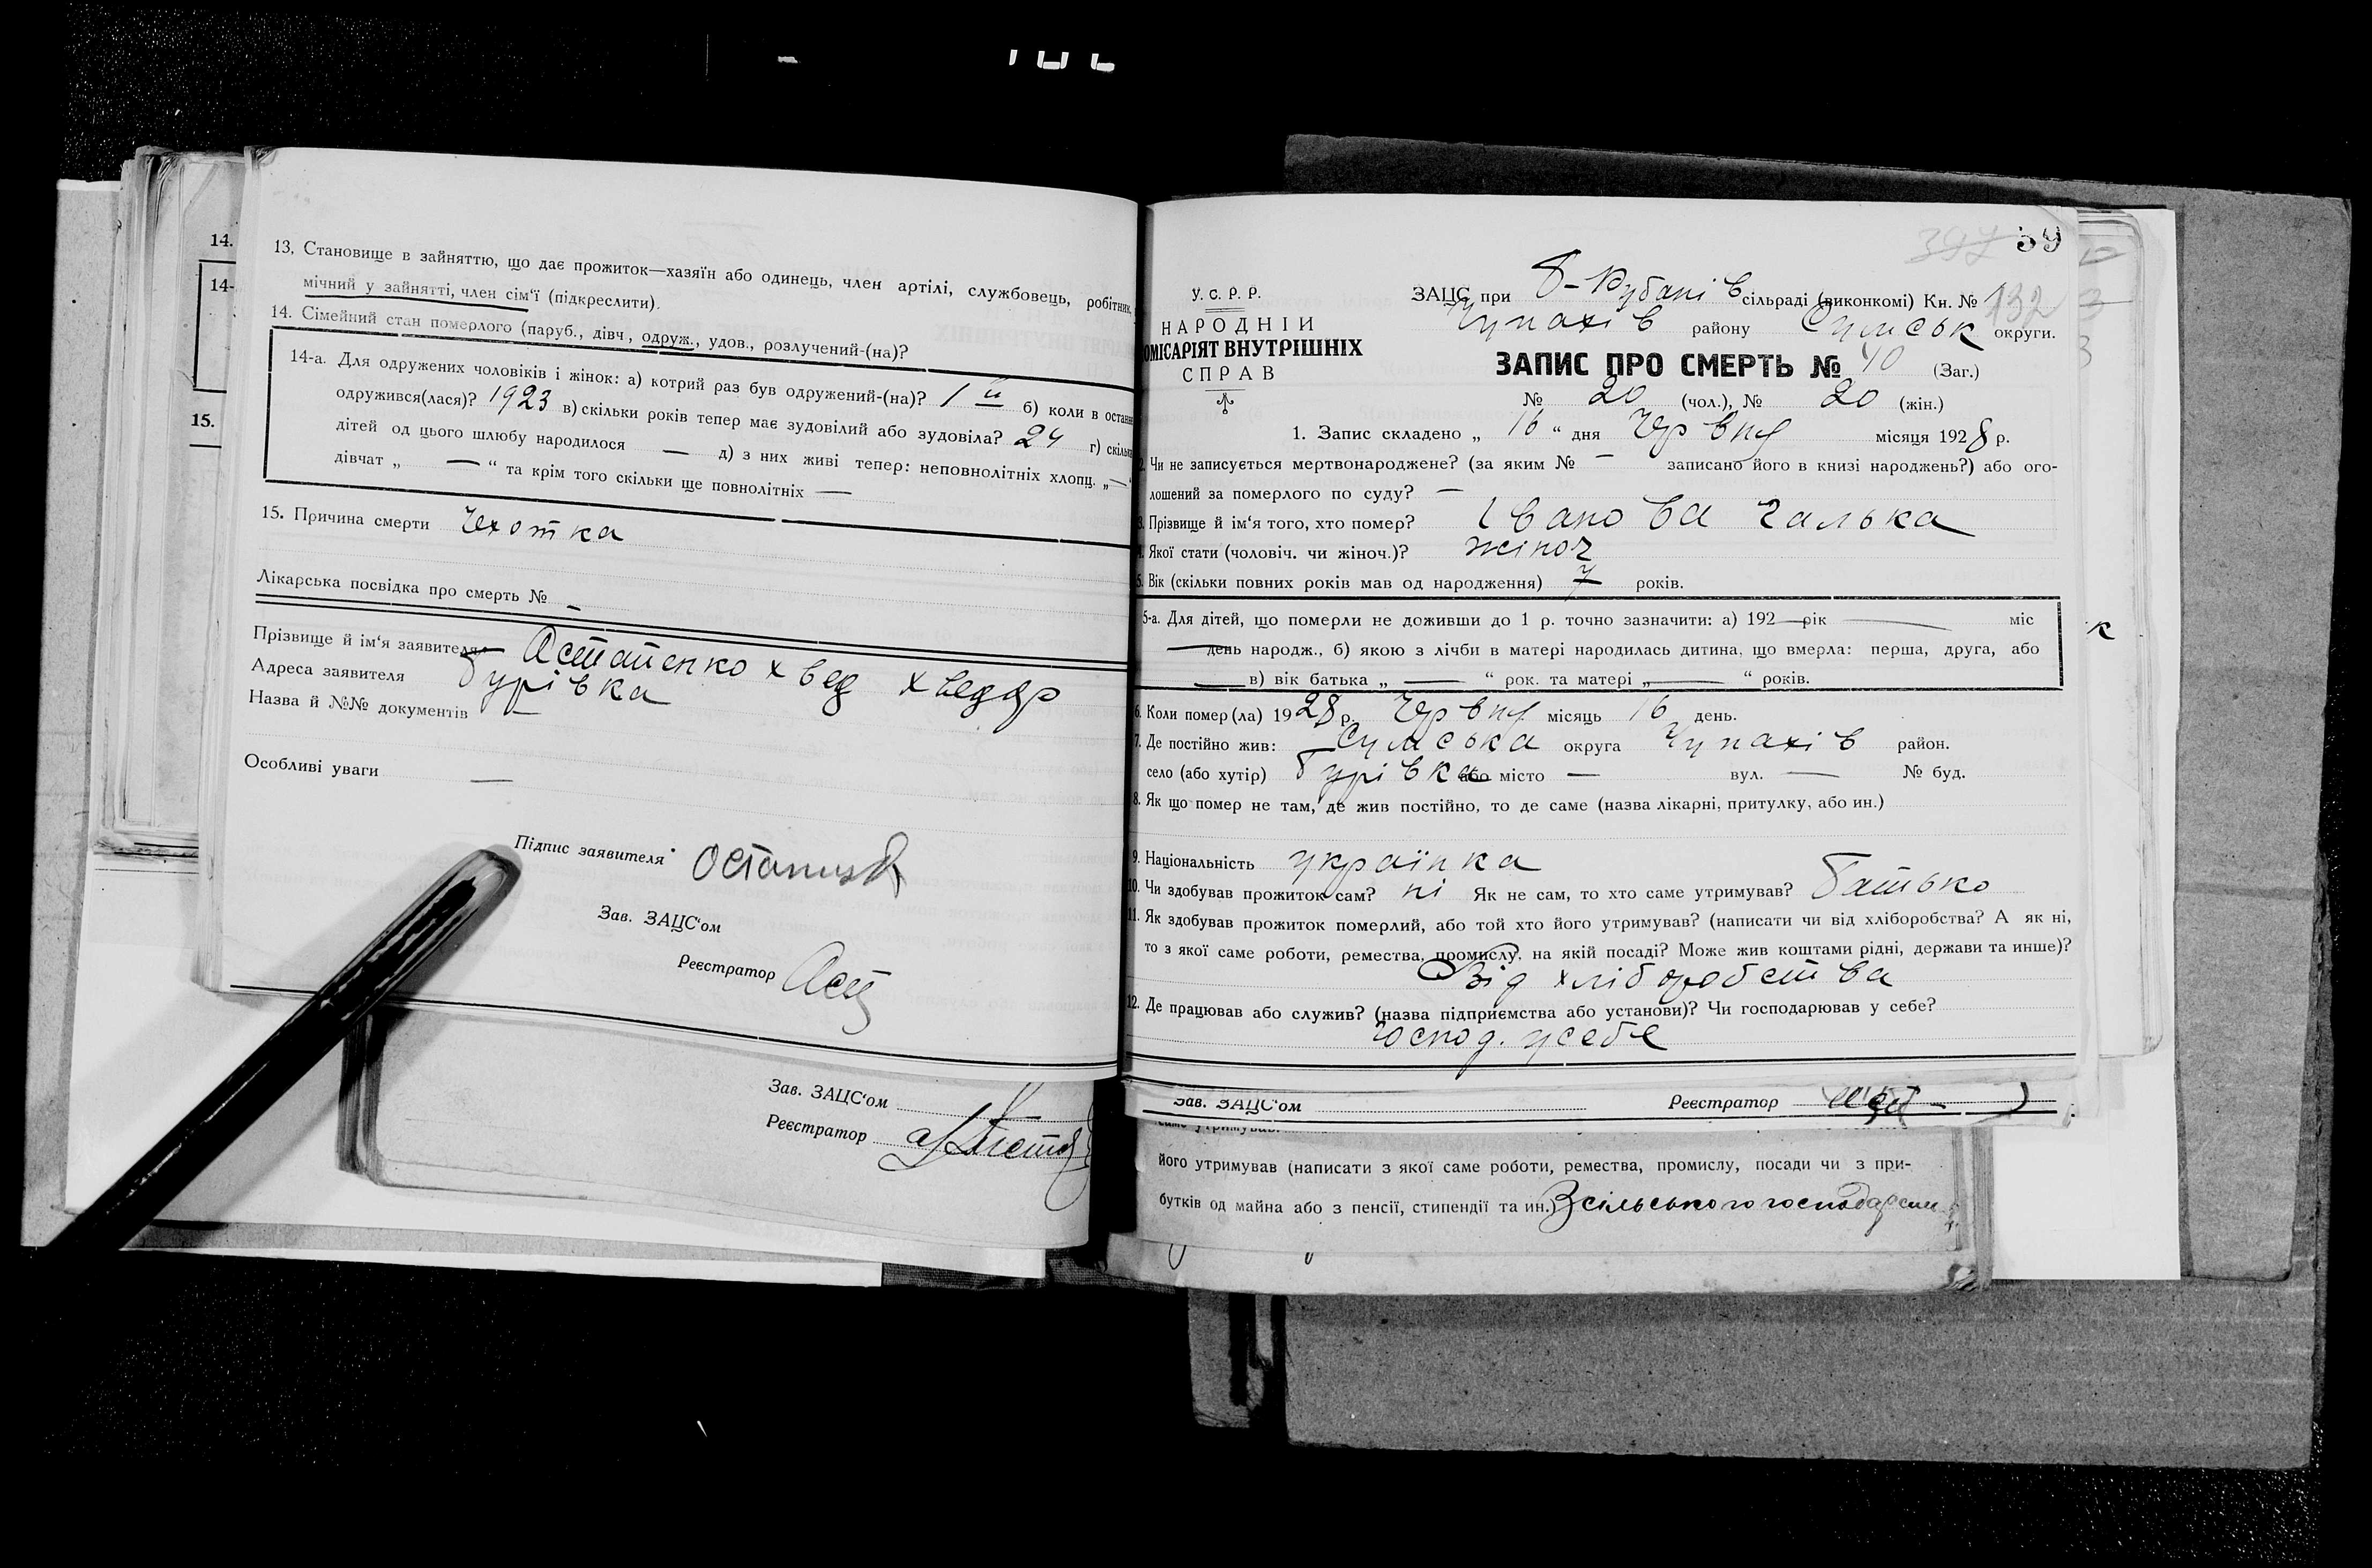 13. Становище в зайняттю, що дає прожиток—хазяїн або одинець, член артілі, службовець, робітник,
мічний у зайнятті, член сім'ї (підкреслити).
14. Сімейний стан померлого (паруб., дівч., одруж., удов., розлучений-(на)?
14-а. Для одружених чоловіків і жінок: а) котрий раз був одружений-(на)? 1й б) коли в останн
одружився(лася)? 1923 в) скільки років тепер має зудовілий або зудовіла? 24 г) скільк
дітей од цього шлюбу народилося — д) з них живі тепер: неповнолітніх хлопц. „—"
дівчат „ — " та крім того скільки ще повнолітніх —
15. Причина смерти Чехотка
Лікарська посвідка про смерть № —
Прізвище й ім'я заявителя Астапенко Хвед Хведор
Адреса заявителя Бурівка
Назва й №№ документів —
Особливі уваги —
Підпис заявителя
Зав. ЗАЦС'ом
Реєстратор
Зав. ЗАЦС'ом
Реєстратор
14.
14-
15.
59
У. С. Р. Р.
НАРОДНІЙ
ОМІСАРІЯТ ВНУТРІШНІХ
СПРАВ
ЗАЦС при Б-Рубанів сільраді (виконкомі) Кн. № 132
Чупахів району Сумськ округи.
ЗАПИС ПРО СМЕРТЬ № 40 (Заг.)
№ 20 (чол.), № 20 (жін.)
1. Запис складено „ 16 " дня Червня місяця 1928 р.
2. Чи не записується мертвонароджене? (за яким № — записано його в книзі народжень?) або ого-
лошений за померлого по суду? —
3. Прізвище й ім'я того, хто помер? Іванова Галька
4. Якої стати (чоловіч. чи жіноч.)? жіноч
5. Вік (скільки повних років мав од народження) 7 років.
5-а. Для дітей, що померли не доживши до 1 р. точно зазначити: а) 192—рік — міс
— день народж., б) якою з лічби в матері народилась дитина, що вмерла: перша, друга, або
— в) вік батька „ — " рок. та матері „ — " років.
6. Коли помер(ла) 1928 р. Червня місяць 16 день.
7. Де постійно жив: Сумська округа Чупахів район.
село (або хутір) Бурівка або місто — вул. — № буд.
8. Як що помер не там, де жив постійно, то де саме (назва лікарні, притулку, або ин.)
9. Національність українка
10. Чи здобував прожиток сам? ні Як не сам, то хто саме утримував? Батько
11. Як здобував прожиток померлий, або той хто його утримував? (написати чи від хліборобства? А як ні,
то з якої саме роботи, ремества, промислу, на якій посаді? Може жив коштами рідні, держави та инше)?
Від хліборобства
12. Де працював або служив? (назва підприємства або установи)? Чи господарював у себе?
Господ. усебе
Зав. ЗАЦС'ом Реєстратор
саме утримував.
його утримував (написати з якої саме роботи, ремества, промислу, посади чи з при-
бутків од майна або з пенсії, стипендії та ин.) З сільського господарст